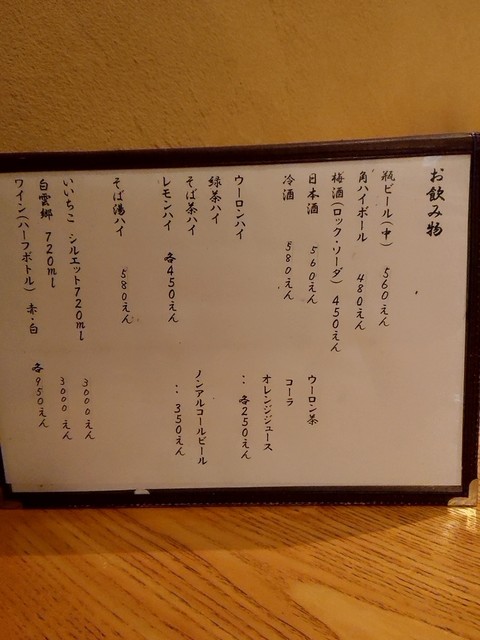 お飲み物
瓶ビール(中) 560えん
角ハイボール 480えん
梅酒(ロック・ソーダ) 450えん
日本酒 560えん
冷酒 580えん
ウーロンハイ
緑茶ハイ
そば茶ハイ
レモンハイ 各450えん
そば湯ハイ 580えん
いいちこ シルエット720ml 3000えん
白雲郷 720ml 3000えん
ワイン(ハーフボトル) 赤・白 各950えん
ウーロン茶
コーラ
オレンジジュース
‥各250えん
ノンアルコールビール
‥350えん